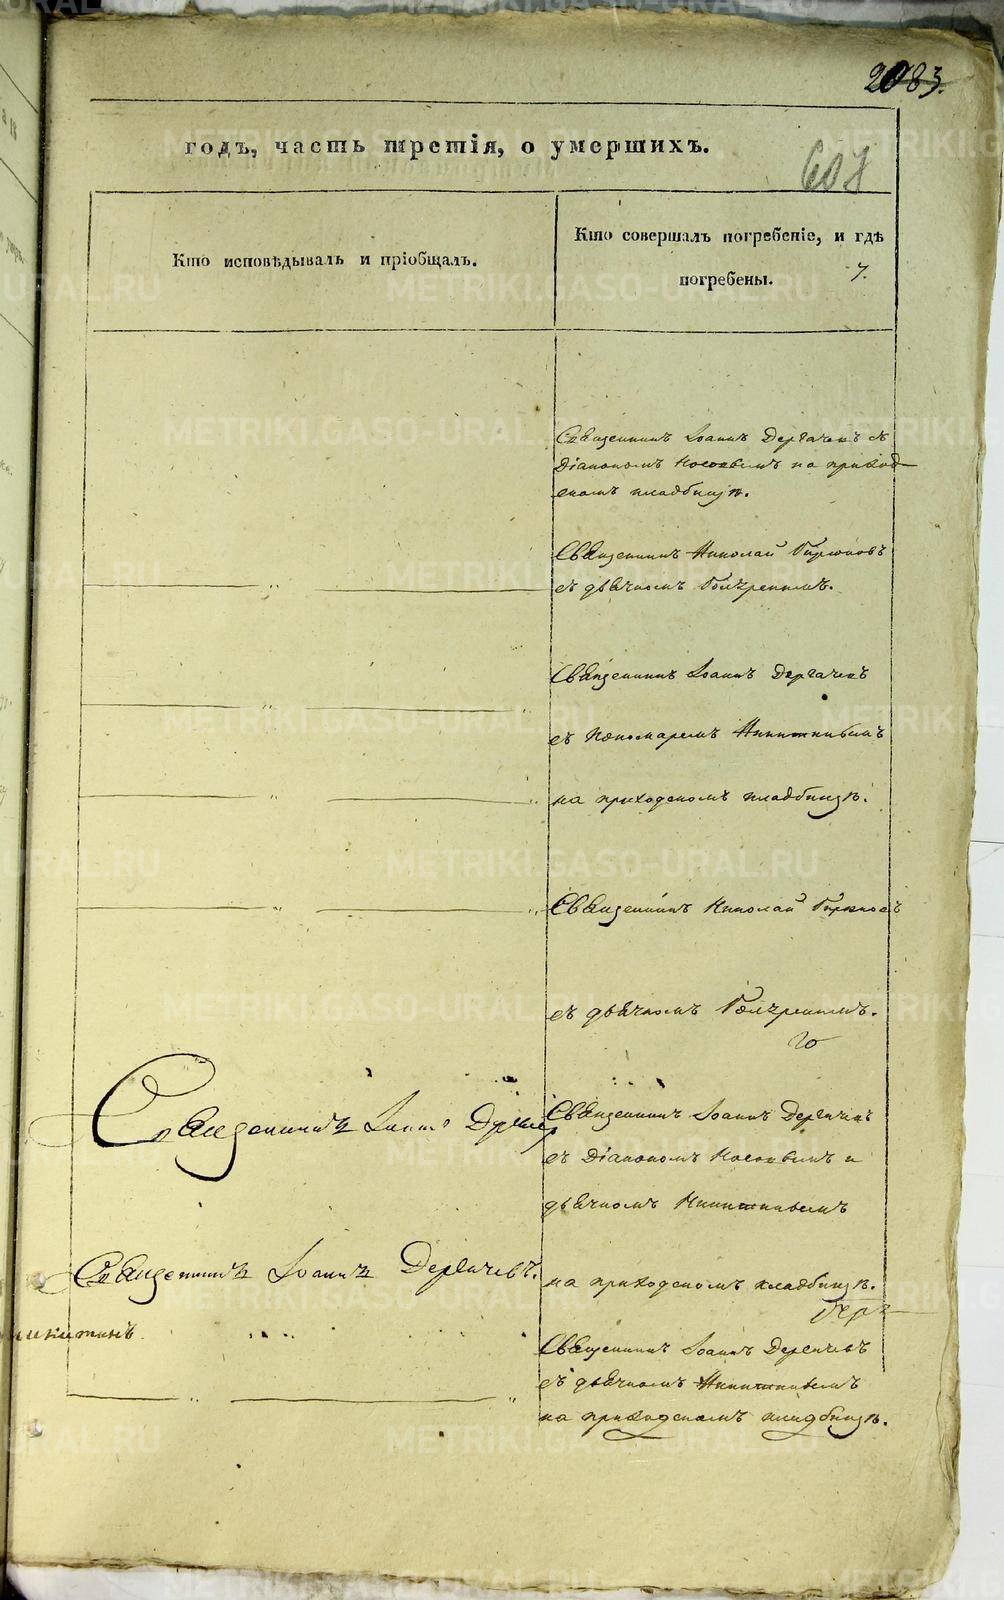 2083.
годъ, часть третія, о умершихъ.
607
Кто исповѣдывалъ и пріобщалъ.
Кто совершалъ погребеніе, и гдѣ
погребены.
7.
Священникъ Іоаннъ Дергачевъ съ
Діакономъ Носовымъ на приход
скомъ кладбищѣ.
Священникъ Николай
съ дьячкомъ
Священникъ Іоаннъ Дергачевъ
съ Пономаремъ Никитинымъ
на приходскомъ кладбищѣ.
Священникъ Николай
съ дьячкомъ
Священникъ Іоаннъ
Священникъ Іоаннъ Дергачевъ
съ Діакономъ Носовымъ и
дьячкомъ Никитинымъ
Священникъ Іоаннъ Дергачевъ.
на приходскомъ кладбищѣ.
Никитинъ
Священникъ Іоаннъ Дергачевъ
съ дьячкомъ Никитинымъ
на приходскомъ кладбищѣ.
METRIKI.GASO-URAL.RU